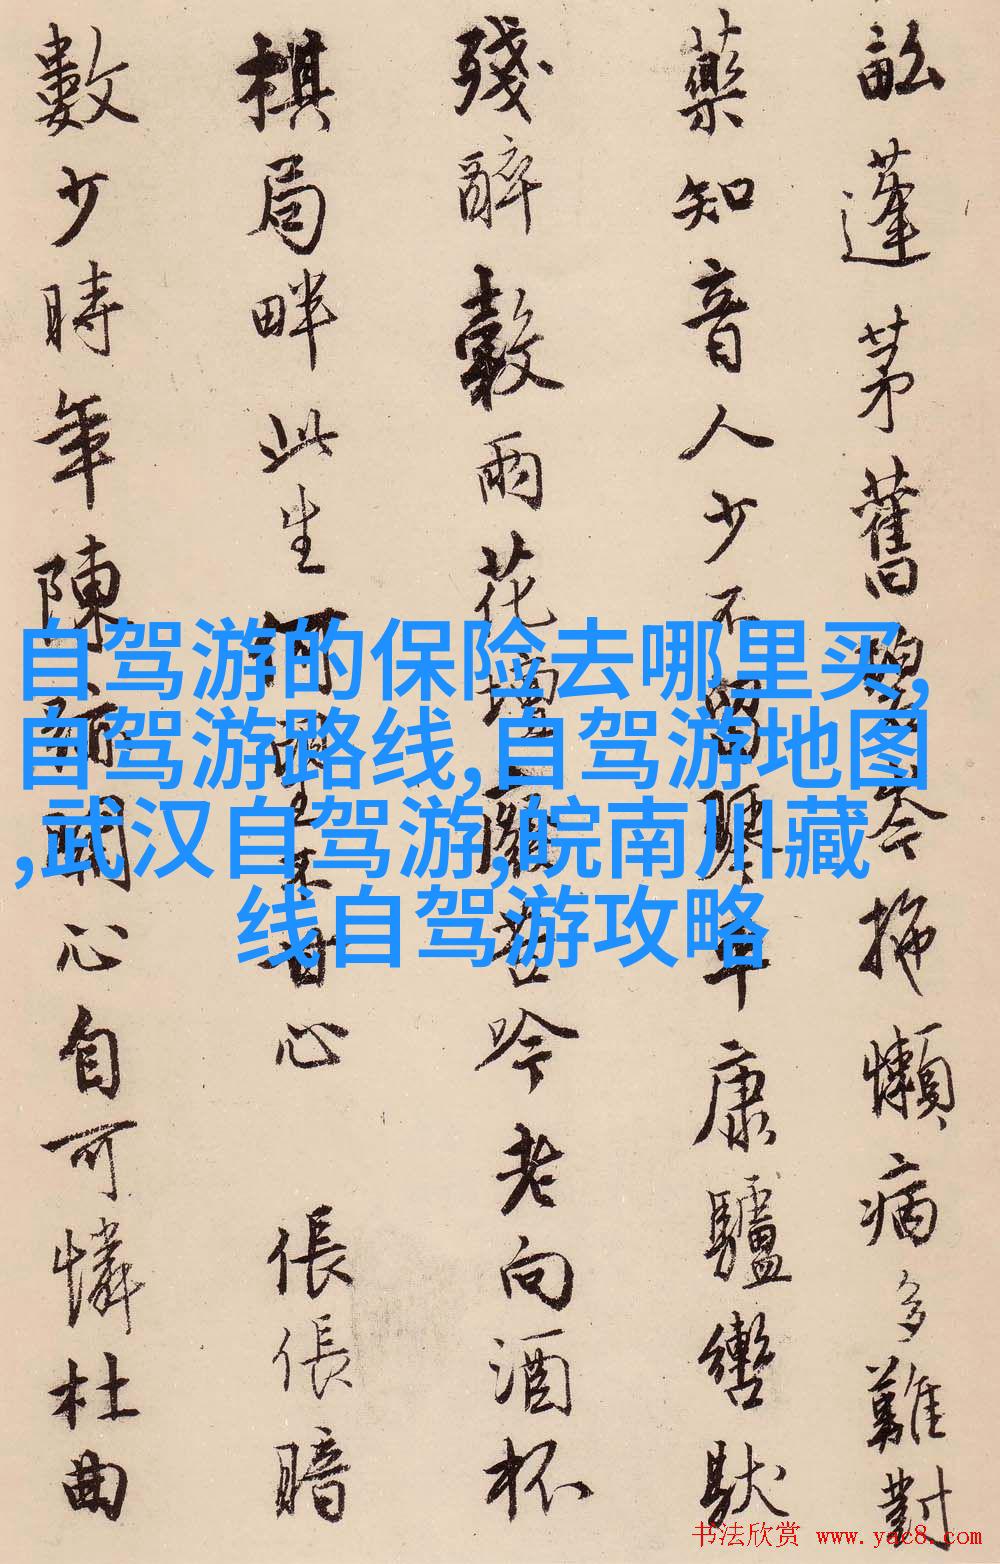 畝蓬茅舊岑懶病多難對
藥知音人少不留琴平康驢轡馱
殘醉穀雨花壇苦吟老向酒杯
棋局畔此生甘心 悵悵暗
數少時年陳關心自可憐杜曲
自驾游的保险去哪里买,
自驾游路线,自驾游地图
,武汉自驾游,皖南川藏
线自驾游攻略
书法欣赏 www.yac8.com